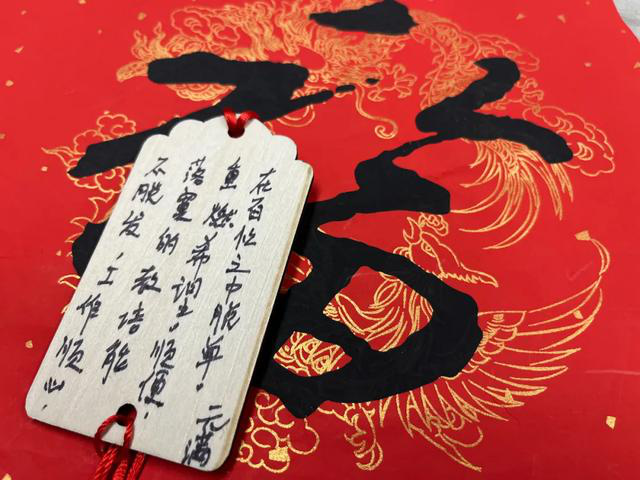 福
在百忙之中脱单。
重燃希望，顺便
落寞的教培能
不脱发，工作顺心。
元满